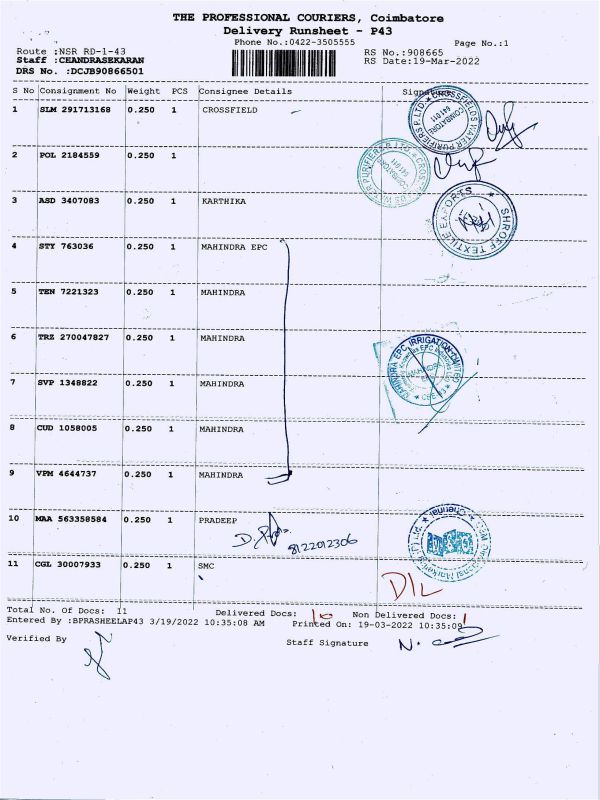 THE PROFESSIONAL COURIERS, Coimbatore
Delivery Runsheet - P43
Phone No.:0422-3505555 Page No.:1
Route :NSR RD-1-43 RS No.:908665
Staff :CHANDRASEKARAN RS Date:19-Mar-2022
DRS No. :DCJB90866501
S No Consignment No Weight PCS Consignee Details Signature
1 SLM 291713168 0.250 1 CROSSFIELD
CROSSFIELDS WATER PURIFIERS P. LTD. COIMBATORE 641 011
2 POL 2184559 0.250 1
CROSSFIELDS WATER PURIFIERS P. LTD. COIMBATORE 641 011
3 ASD 3407083 0.250 1 KARTHIKA
SHROFF TEXTILE EXPORTS
4 STY 763036 0.250 1 MAHINDRA EPC
5 TEN 7221323 0.250 1 MAHINDRA
6 TRZ 270047827 0.250 1 MAHINDRA
MAHINDRA EPC IRRIGATION LIMITED
7 SVP 1348822 0.250 1 MAHINDRA
8 CUD 1058005 0.250 1 MAHINDRA
9 VPM 4644737 0.250 1 MAHINDRA
10 MAA 563358584 0.250 1 PRADEEP
8122012306
Chennai
11 CGL 30007933 0.250 1 SMC
D/L
Total No. Of Docs: 11 Delivered Docs: 10 Non Delivered Docs: 1
Entered By :BPRASHEELAP43 3/19/2022 10:35:08 AM Printed On: 19-03-2022 10:35:09
Verified By Staff Signature